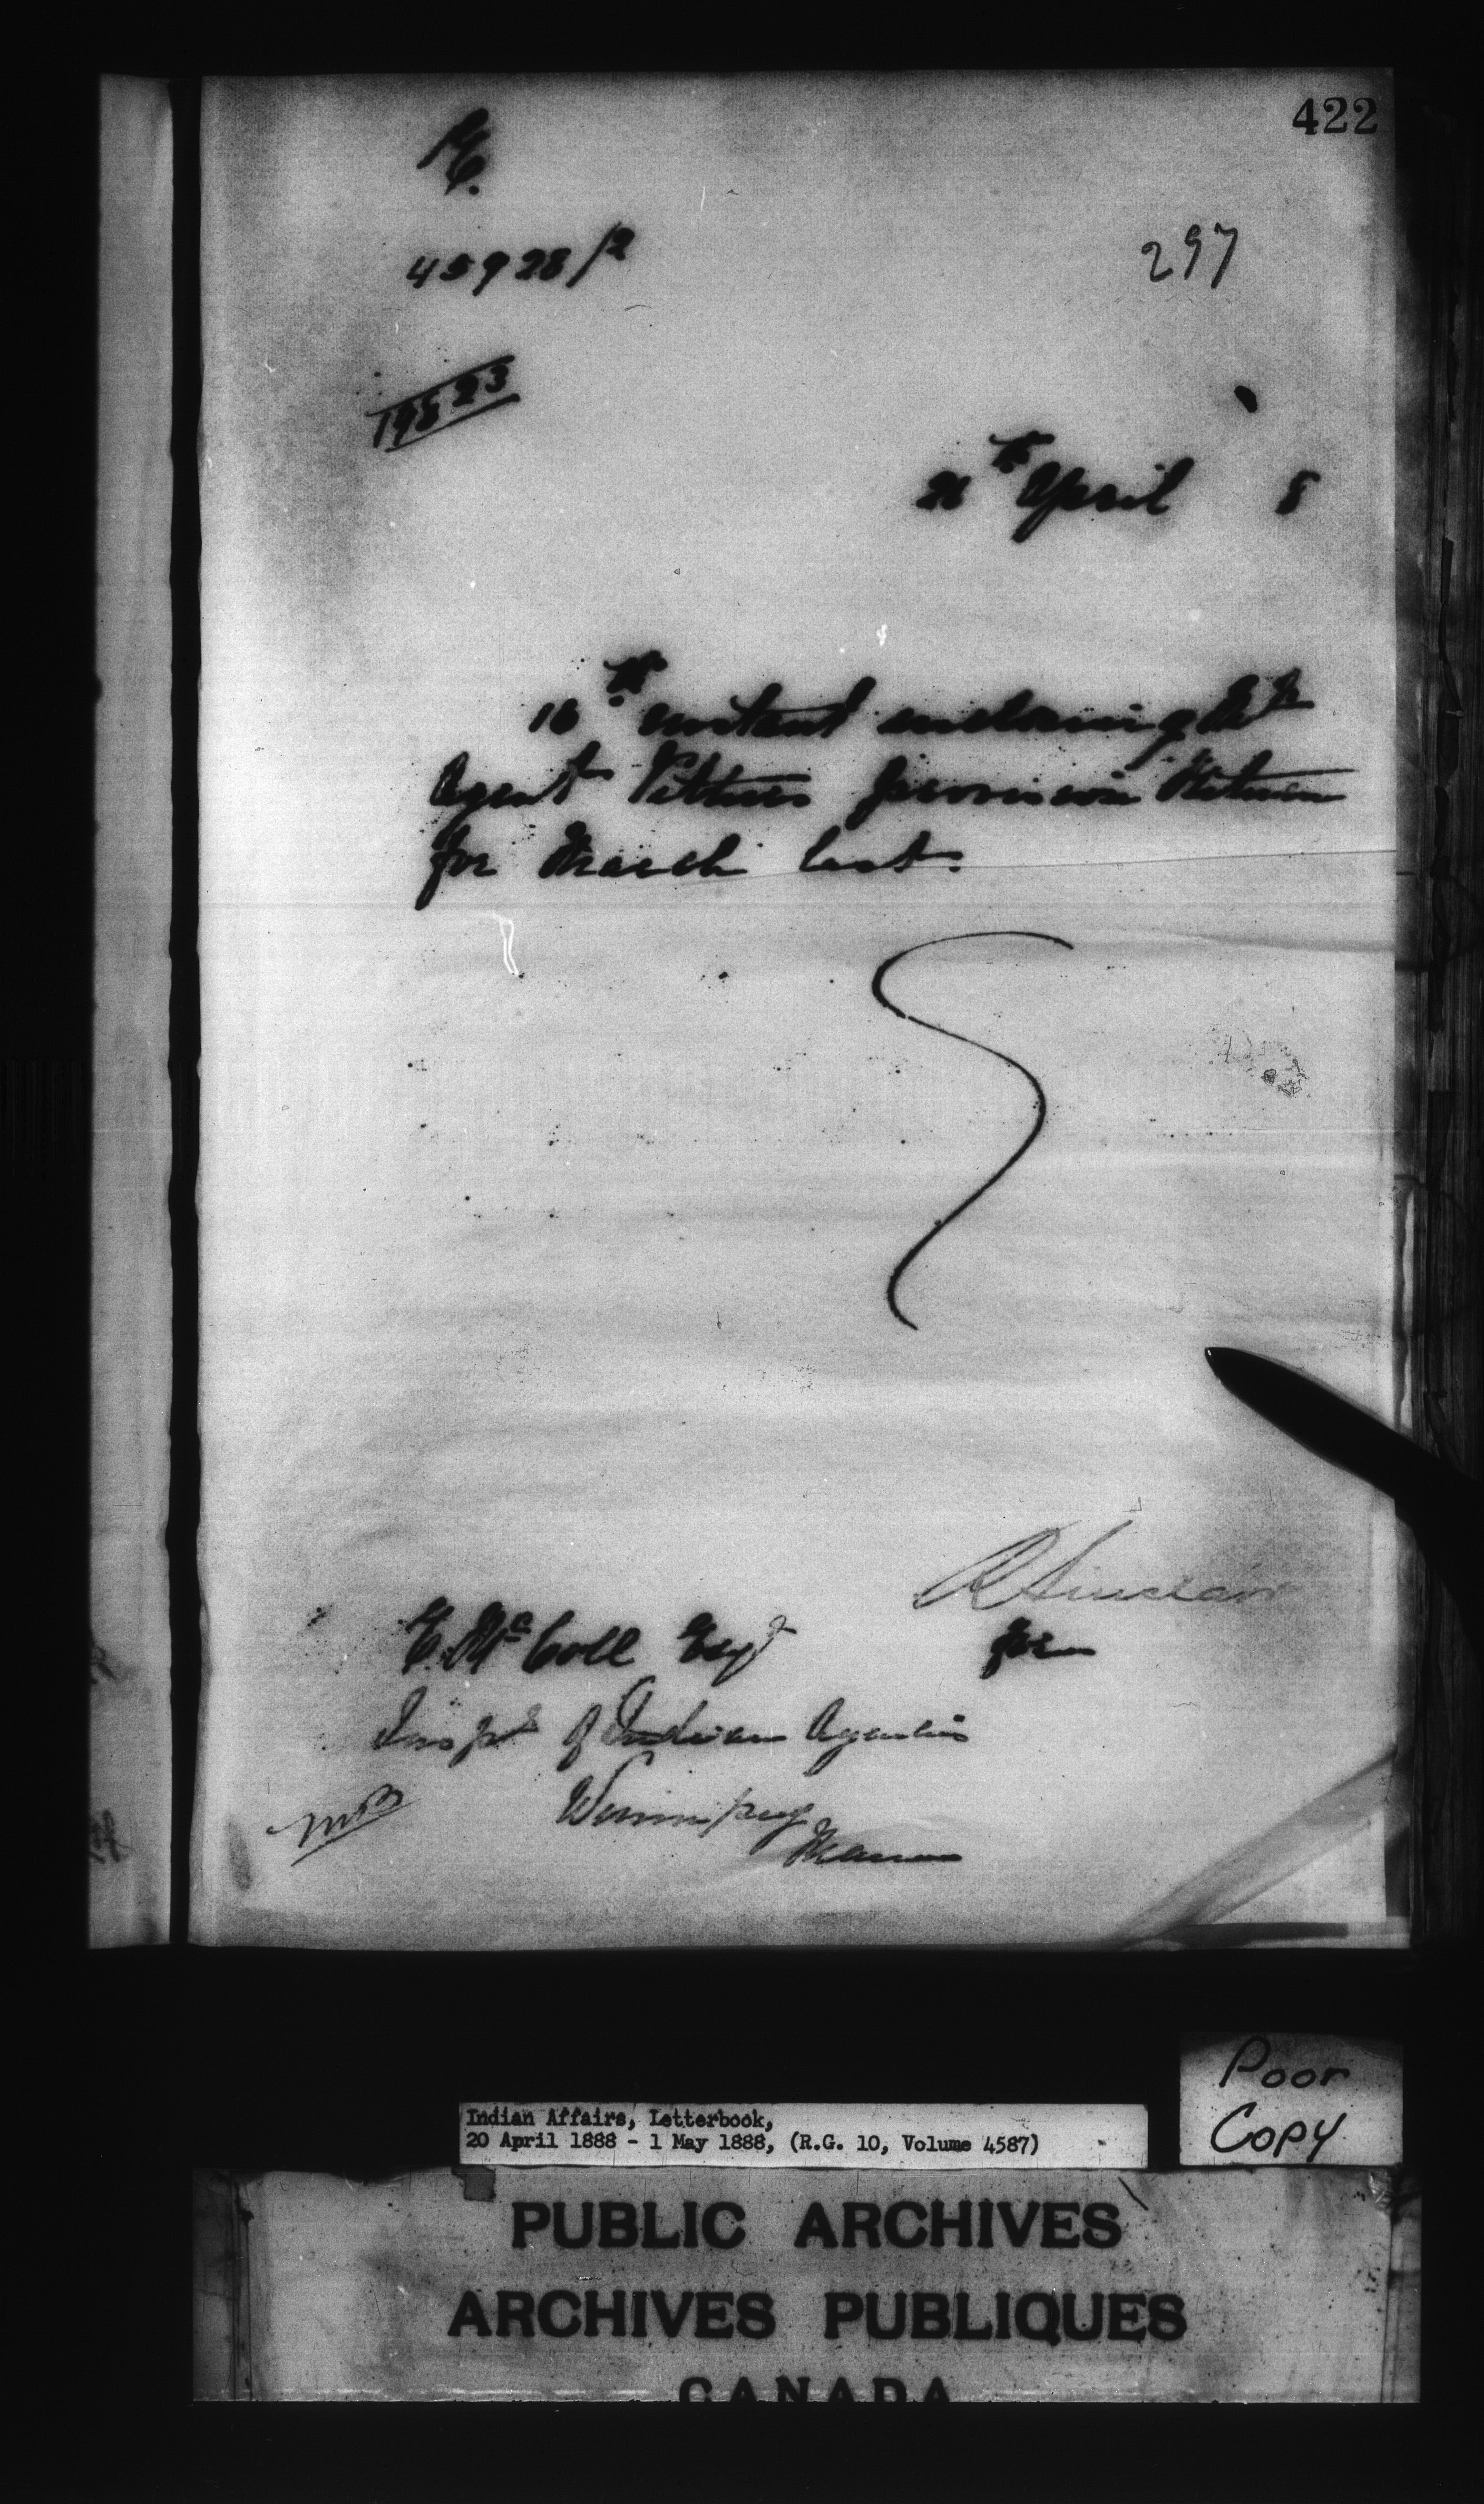 422
45928/2
297
19523
26th April 8
16th instant enclosing
Agent provision Return
for March last.
R Sinclair
for
E. McColl Esqr
Inspr of Indian Agencies
Winnipeg
Man
MB
Poor
Copy
Indian Affairs, Letterbook,
20 April 1888 - 1 May 1888, (R.G. 10, Volume 4587)
PUBLIC ARCHIVES
ARCHIVES PUBLIQUES
CANADA